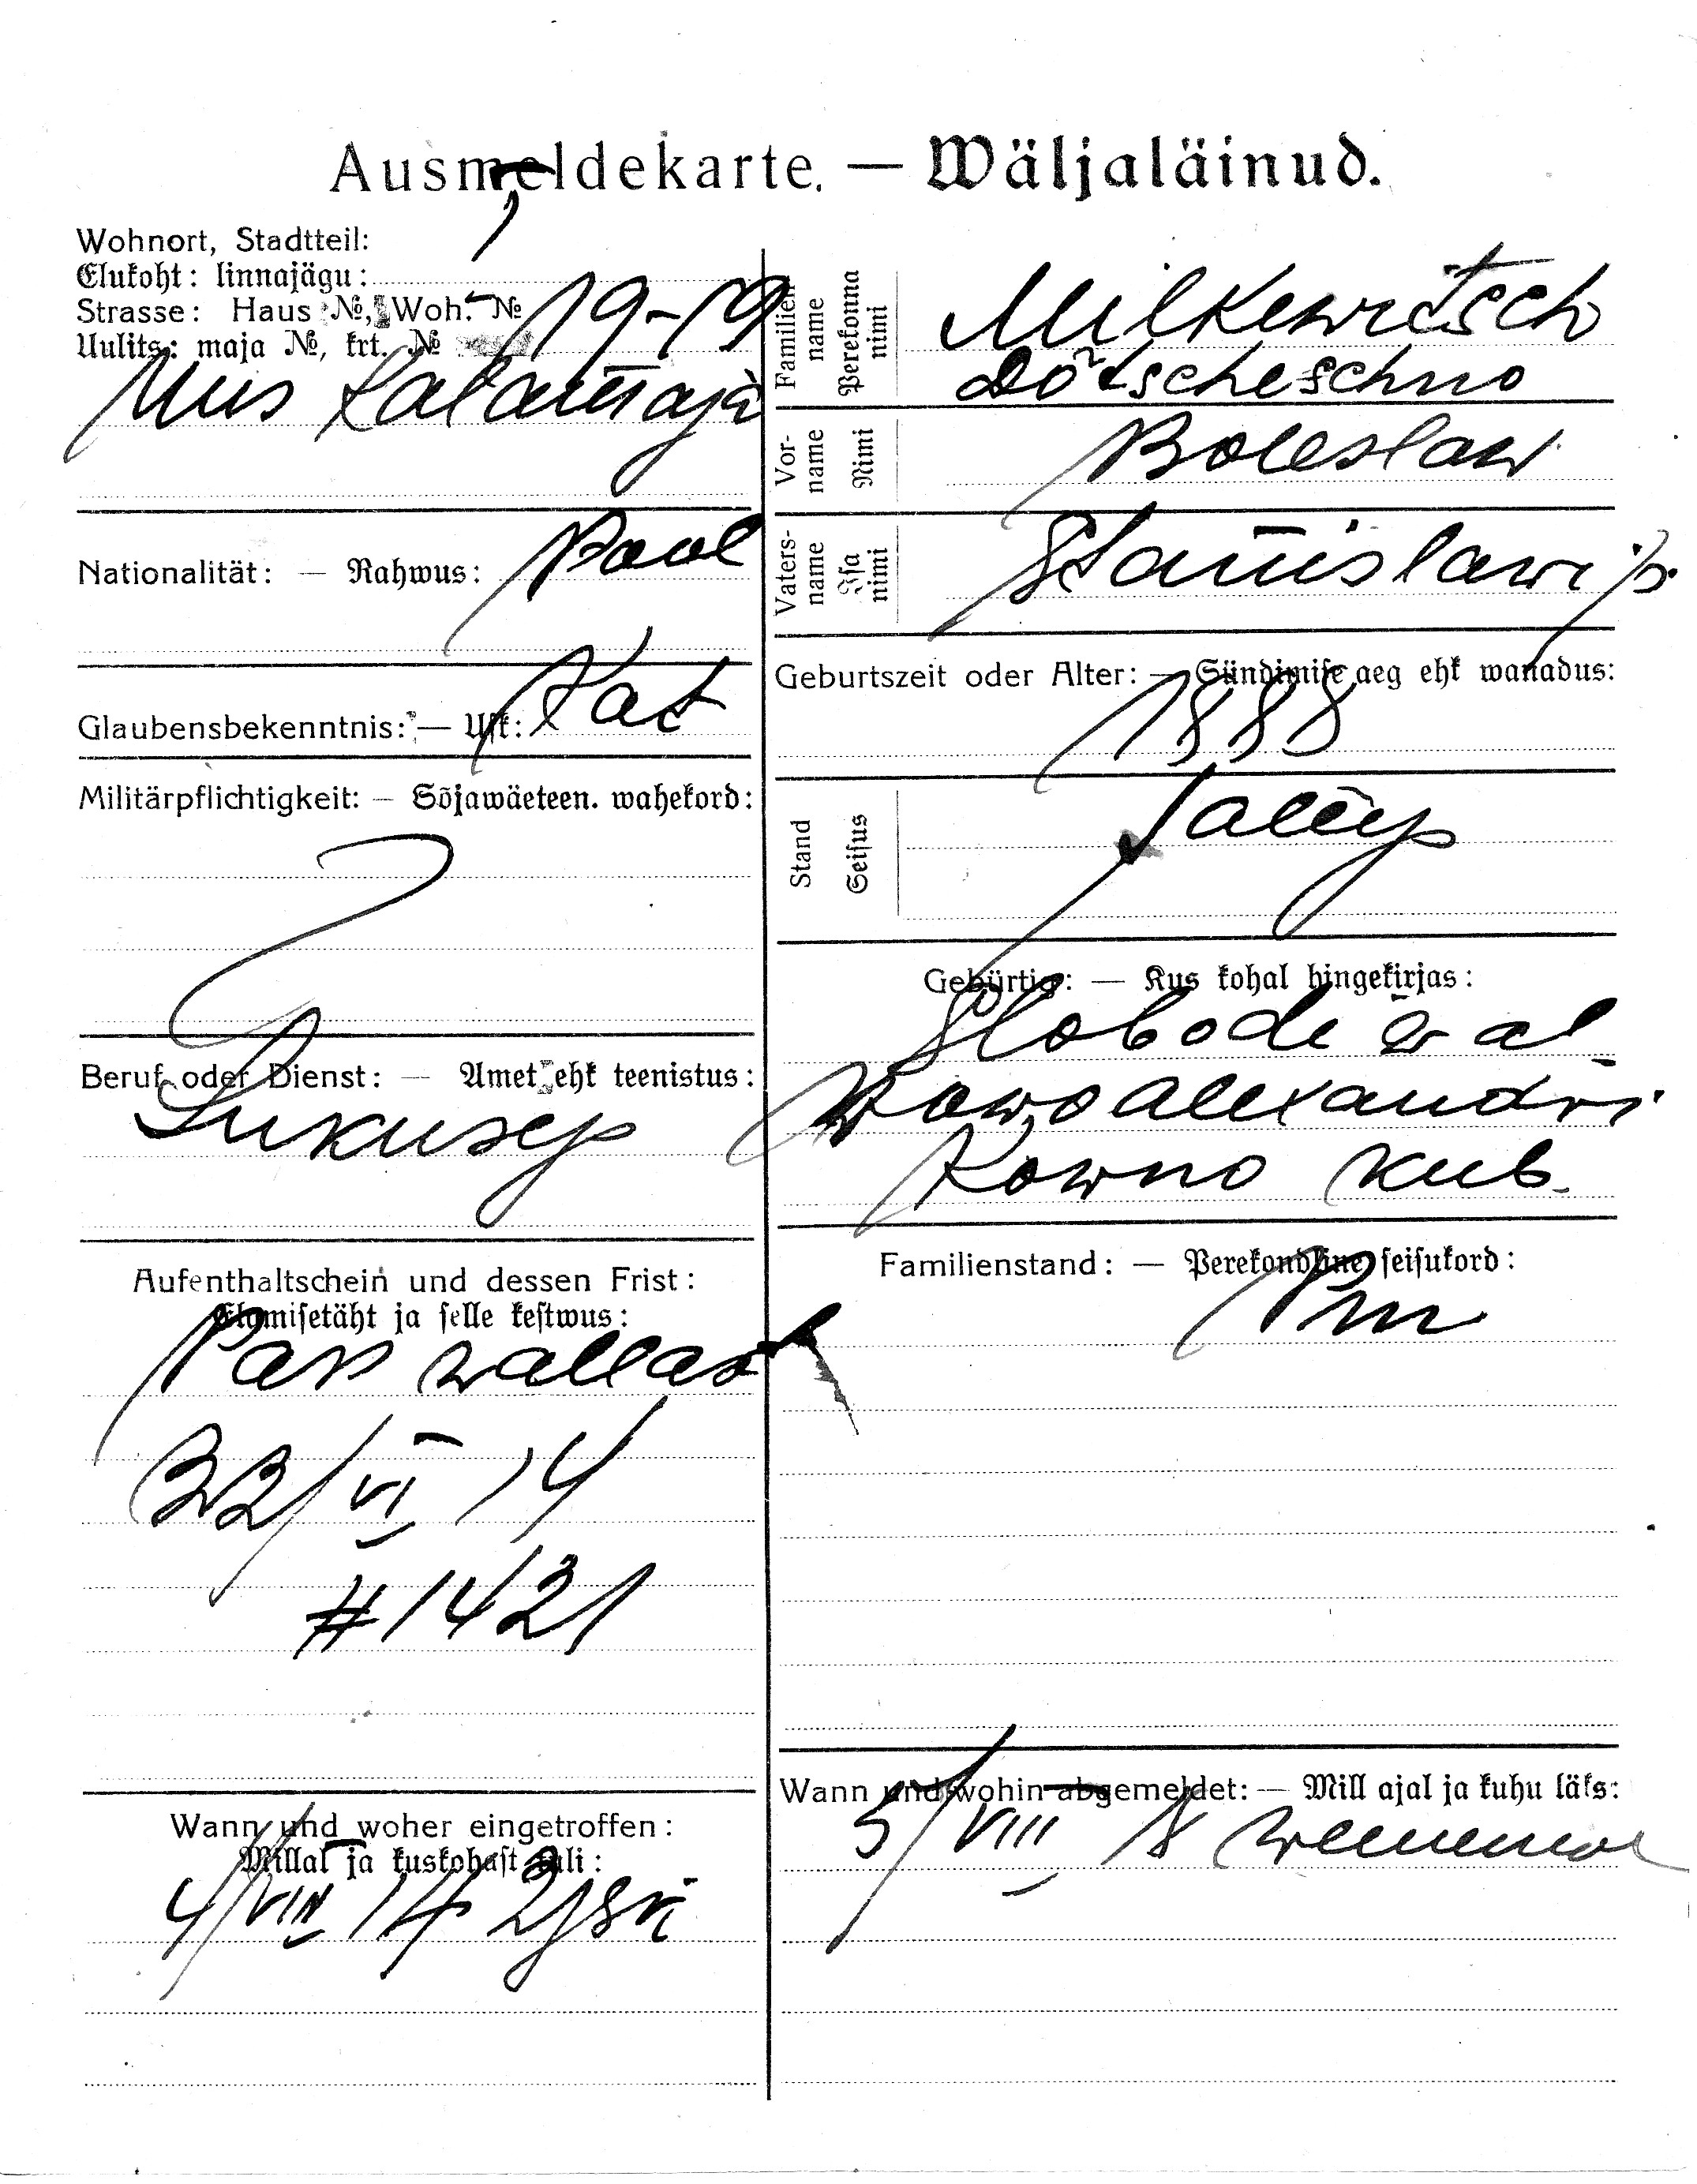 Ausmeldekarte. — Wäljaläinud.
Wohnort, Stadtteil:
Elukoht: linnajägu:
Strasse: Haus №, Woh. №
Uulits: maja №, krt. № 19-19
Uus Kalamaja
Nationalität: — Rahwus: Pool
Glaubensbekenntnis: — Usk: Kat
Militärpflichtigkeit: — Sõjawäeteen. wahekord:
Beruf oder Dienst: — Amet ehk teenistus:
Lukusep
Aufenthaltschein und dessen Frist:
Elamisetäht ja selle kestwus:
Pass wallast
22/VI 14
# 1421
Wann und woher eingetroffen:
Millal ja kuskohast tuli:
4/VIII 14
Familienname Perekonna nimi
Milkewitsch
Dotscheschno
Vorname Nimi
Boleslaw
Vatersname Isa nimi
Stanislawi p.
Geburtszeit oder Alter: — Sündimise aeg ehk wanadus:
1888
Stand Seisus
Talup
Gebürtig: — Kus kohal hingekirjas:
Slobode wal
Nowoalexandri
Kowno kub.
Familienstand: — Perekondline seisukord:
Pm
Wann und wohin abgemeldet: — Mill ajal ja kuhu läks:
5/VIII 18 Wenemaa